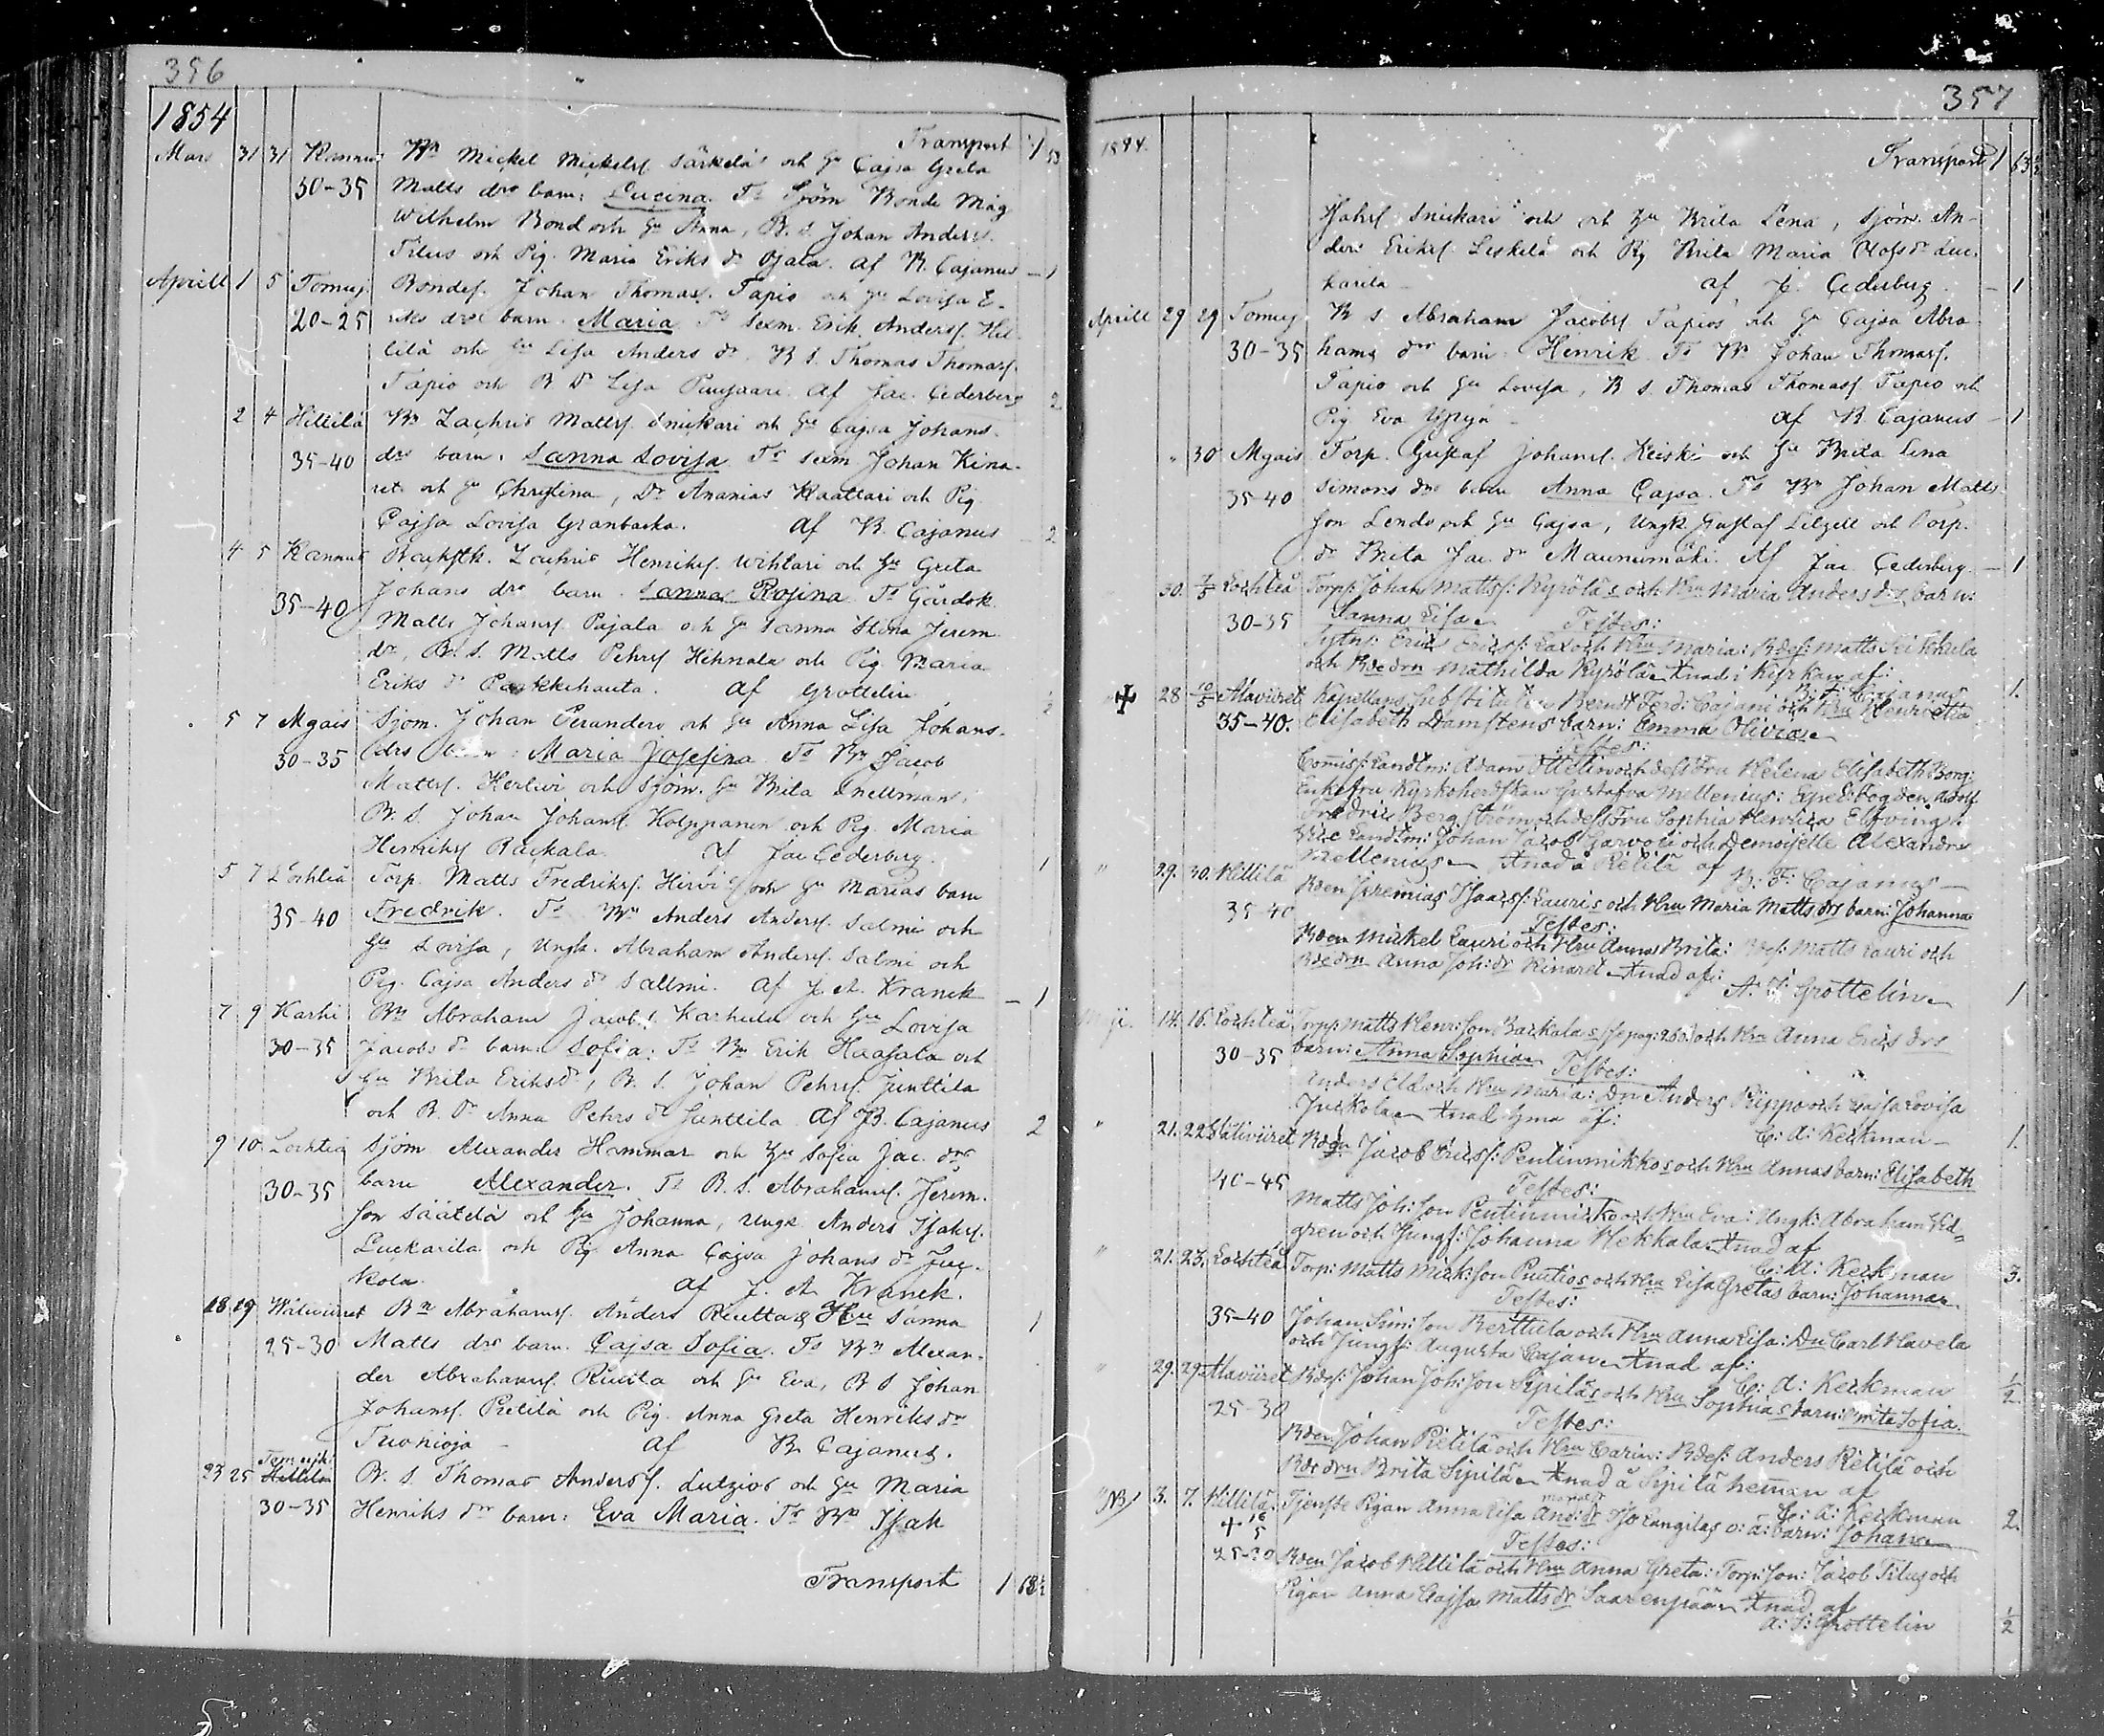 356
1854
Transport 1 53
Mars 31 31 Kannus Bn Mickel Mickelsf. Särkelä och Hu Cajsa Greta
30-35 Matts drs barn: Lucina. Ts Sjöm Bonde Måg
Wilhelm Bond och Hu Anna, B. s. Johan Andersf.
Titus och Pig. Maria Eriks dr Ojala. af B. Cajanus - 1
Aprill 1 5 Tomuj. Bondes. Johan Thomasf. Tapio och Hu Lovisa E-
20-25 riks drs barn. Maria Ts Sexm. Erik Andersf. Hil-
lilä och Hu Lisa Anders dr. B S. Thomas Thomasf.
Tapio och B Dr Lisa Pungaari. af Jac. Cederberg 2
2 4 Hillilä Bn Zachris Mattsf. Snickari och Hu Cajsa Johans
35-40 drs barn. Sanna Lovisa Ts Sexm Johan Kina-
ret och Hu Christina, Dr Ananias Kaattari och Pig
Cajsa Lovisa Granbacka. af B. Cajanus - 2
4 5 Kannus Backstk. Zachris Henriksf. Wihlari och Hu Greta
35-40 Johans drs barn. Sanna Rosina Ts Gårdsk.
Matts Johansf. Pajala och Hu Sanna Stina Jerem
dr, B. S. Matts Pehrsf Hihnala och Pig Maria
Eriks dr Paskkihauta. af Grottelin ½
5 7 Mgais Sjöm. Johan Peranders och Hu Anna Lisa Johans-
30-35 drs barn: Maria Josefina Ts Bn Jacob
Mattsf. Herlevi och Sjöm. Hu Brita Snellman,
B. S. Johan Johansf. Holppanen och Pig. Maria
Henriksf Rackala. af Jac Cederberg. 1
5 7 Lochteå Torp. Matts Fredriksf. Hirvi och Hu Marias barn
35-40 Fredrik. Ts Bn Anders Andersf. Salmi och
Hu Lovisa, Ungk. Abraham Andersf. Salmi och
Pig. Cajsa Anders dr Sallmi. af J. A. Kranck - 1
7 9 Karhi Bn Abraham Jacobs. Karhula och Hu Lovisa
30-35 Jacobs dr barn: Sofia: Ts Bn Erik Haapala och
Hu Brita Eriksdr, B. S. Johan Pehrsf. Junttila
och B. Dr Anna Pehrs dr Junttila af B. Cajanus 2
9 10 Lochteå Sjöm Alexander Hammar och Hu Sofia Jac. drs
30-35 barn Alexander. Ts B. S. Abrahamsf. Jerem.
son Säätelä och Hu Johanna, Ungk Anders Isaksf.
Luckarila och Pig Anna Cajsa Johans dr Juc-
kola. af J. A. Kranck.
18 19 Wälivirret Bn Abrahamsf. Anders Ruuttas Hu Sanna 1
25-30 Matts drs barn. Cajsa Sofia. Ts Bn Alexan-
der Abrahamsf. Ruuta och Hu Eva, B S Johan
Johansf. Pietilä och Pig. Anna Greta Henriks dr
Tuohioja - af B. Cajanus.
Tomujk.
23 25 Hillilä B. S Thomas Andersf. Lutzios och Hu Maria
30-35 Henriks drs barn: Eva Maria. Ts Bn Isak
Transport 1 68½
357
1854.
Transport 1 63½
Isaksf. Snickari och och Hu Brita Lena, Sjöm. An-
ders Eriksf. Leskelä och Pig Brita Maria Olofs dr Luc-
karila - af J. Cederberg. - 1
Aprill 29 29 Tomuj B S Abraham Jacobsf Tapios och Hu Cajsa Abra
30-35 hams drs barn: Henrik Ts Bn Johan Thomasf.
Tapio och Hu Lovisa, B S. Thomas Thomasf Tapio och
Pig Eva Ypyä - af B. Cajanus - 1
" 30 Mgais Torp. Gustaf Johansf. Keiski och Hu Brita Lena
35-40 Simons drs barn Anna Cajsa. Ts Bn Johan Matts-
son Lende och Hu Cajsa, Ungk Gustaf Lilqell och Torp.
dr Brita Jac. dr Maunumäki. Af Jac Cederberg. - 1
30. 7/5 Lochteå Torp: Johan Mattsf: Kyröläs och Hru Maria Anders drs barn:
30-35 Sanna Lisa Testes:
Sytn: Eric Ericsf: Lax och Hru Maria: Bdes: Matts Seikkula
och Bdedrn Mathilda Kyrölä Xnad i Kyrkan af:
B: F: Cajanus 1.
✠ 28 10/5 Alaviiret Kapellans Substituten Berndt Ferd: Cajani och Fru Henrietta
35-40. Elisabeth Damstens barn: Emma Olivia
Testes:
Comiss: Landtm: Adam Ottelin och dess Fru Helena Elisabeth Borg:
Enkefru Kyrkoherdskan Gustafva Mellenius: Exped: Fogden Adolf
Fredric Bergström och dess Fru Sophia Henrica Elfving:
Vice Landtm: Johan Jacob Garvoli och Demoiselle Alexandra
Mellenius Xnad å Pietilä af B: F: Cajanus -
" 29. 30. Hillilä Bden Jeremias Isacsf: Lauris och Hru Maria Matts drs barn: Johanna
35-40 Testes:
Bden Mickel Lauri och Hru Anna Brita: Bdes: Matts Lauri och
Bdedrn Anna Joh: dr Kinaret Xnad af:
A: F: Grottelin 1
Maji. 14. 16. Lochteå Torp: Matts Henr: son Backalas (se pag: 260) och Hru Anna Erics drs
30-35 barn: Anna Sophia Testes:
Anders Eld och Hru Maria: Dn Anders Pippo och Cajsa Lovisa
Juckola Xnad hma af:
C: A: Keckman - 1.
" 21. 22. Wäliviiret Bden Jacob Ericsf: Pentinmikkos och Hru Annas barn: Elisabeth
40-45 Testes:
Matts Joh: son Pentinmikko och Hru Eva: Ungk: Abraham Wid-
gren och Jungf: Johanna Hekkala Xnad af
C: A: Keckman 3.
" 21. 23. Lochteå Torp: Matts Mick: son Puutios och Hru Lisa Gretas barn: Johanna
Testes:
35-40 Johan Sim: son Berttula och Hru Anna Lisa: Dn Carl Havela
och Jungf: Augusta Cajan Xnad af:
C: A: Keckman ½
" 29. 29. Alaviiret Bdes: Johan Joh: son Sipiläs och Hru Sophias barn: Brita Sofia.
25-30 Testes:
Bden Johan Pietilä och Hru Carin: Bdes: Anders Pietilä och
Bdedrn Brita Sipilä Xnad å Sipilä heman af
C: A: Keckman 2.
"NB/ 3. 7. Hillilä. Tjenste Pigan Anna Lisa And: dr Iso Langilas o: ä: barn: Johan
25-30 Testes:
Bden Jacob Hillilä och Hru Anna Greta: Torp: son: Jacob Titus och
Pigan Anna Cajsa Matts dr Saarenpää Xnad af
A: F: Grottelin ½